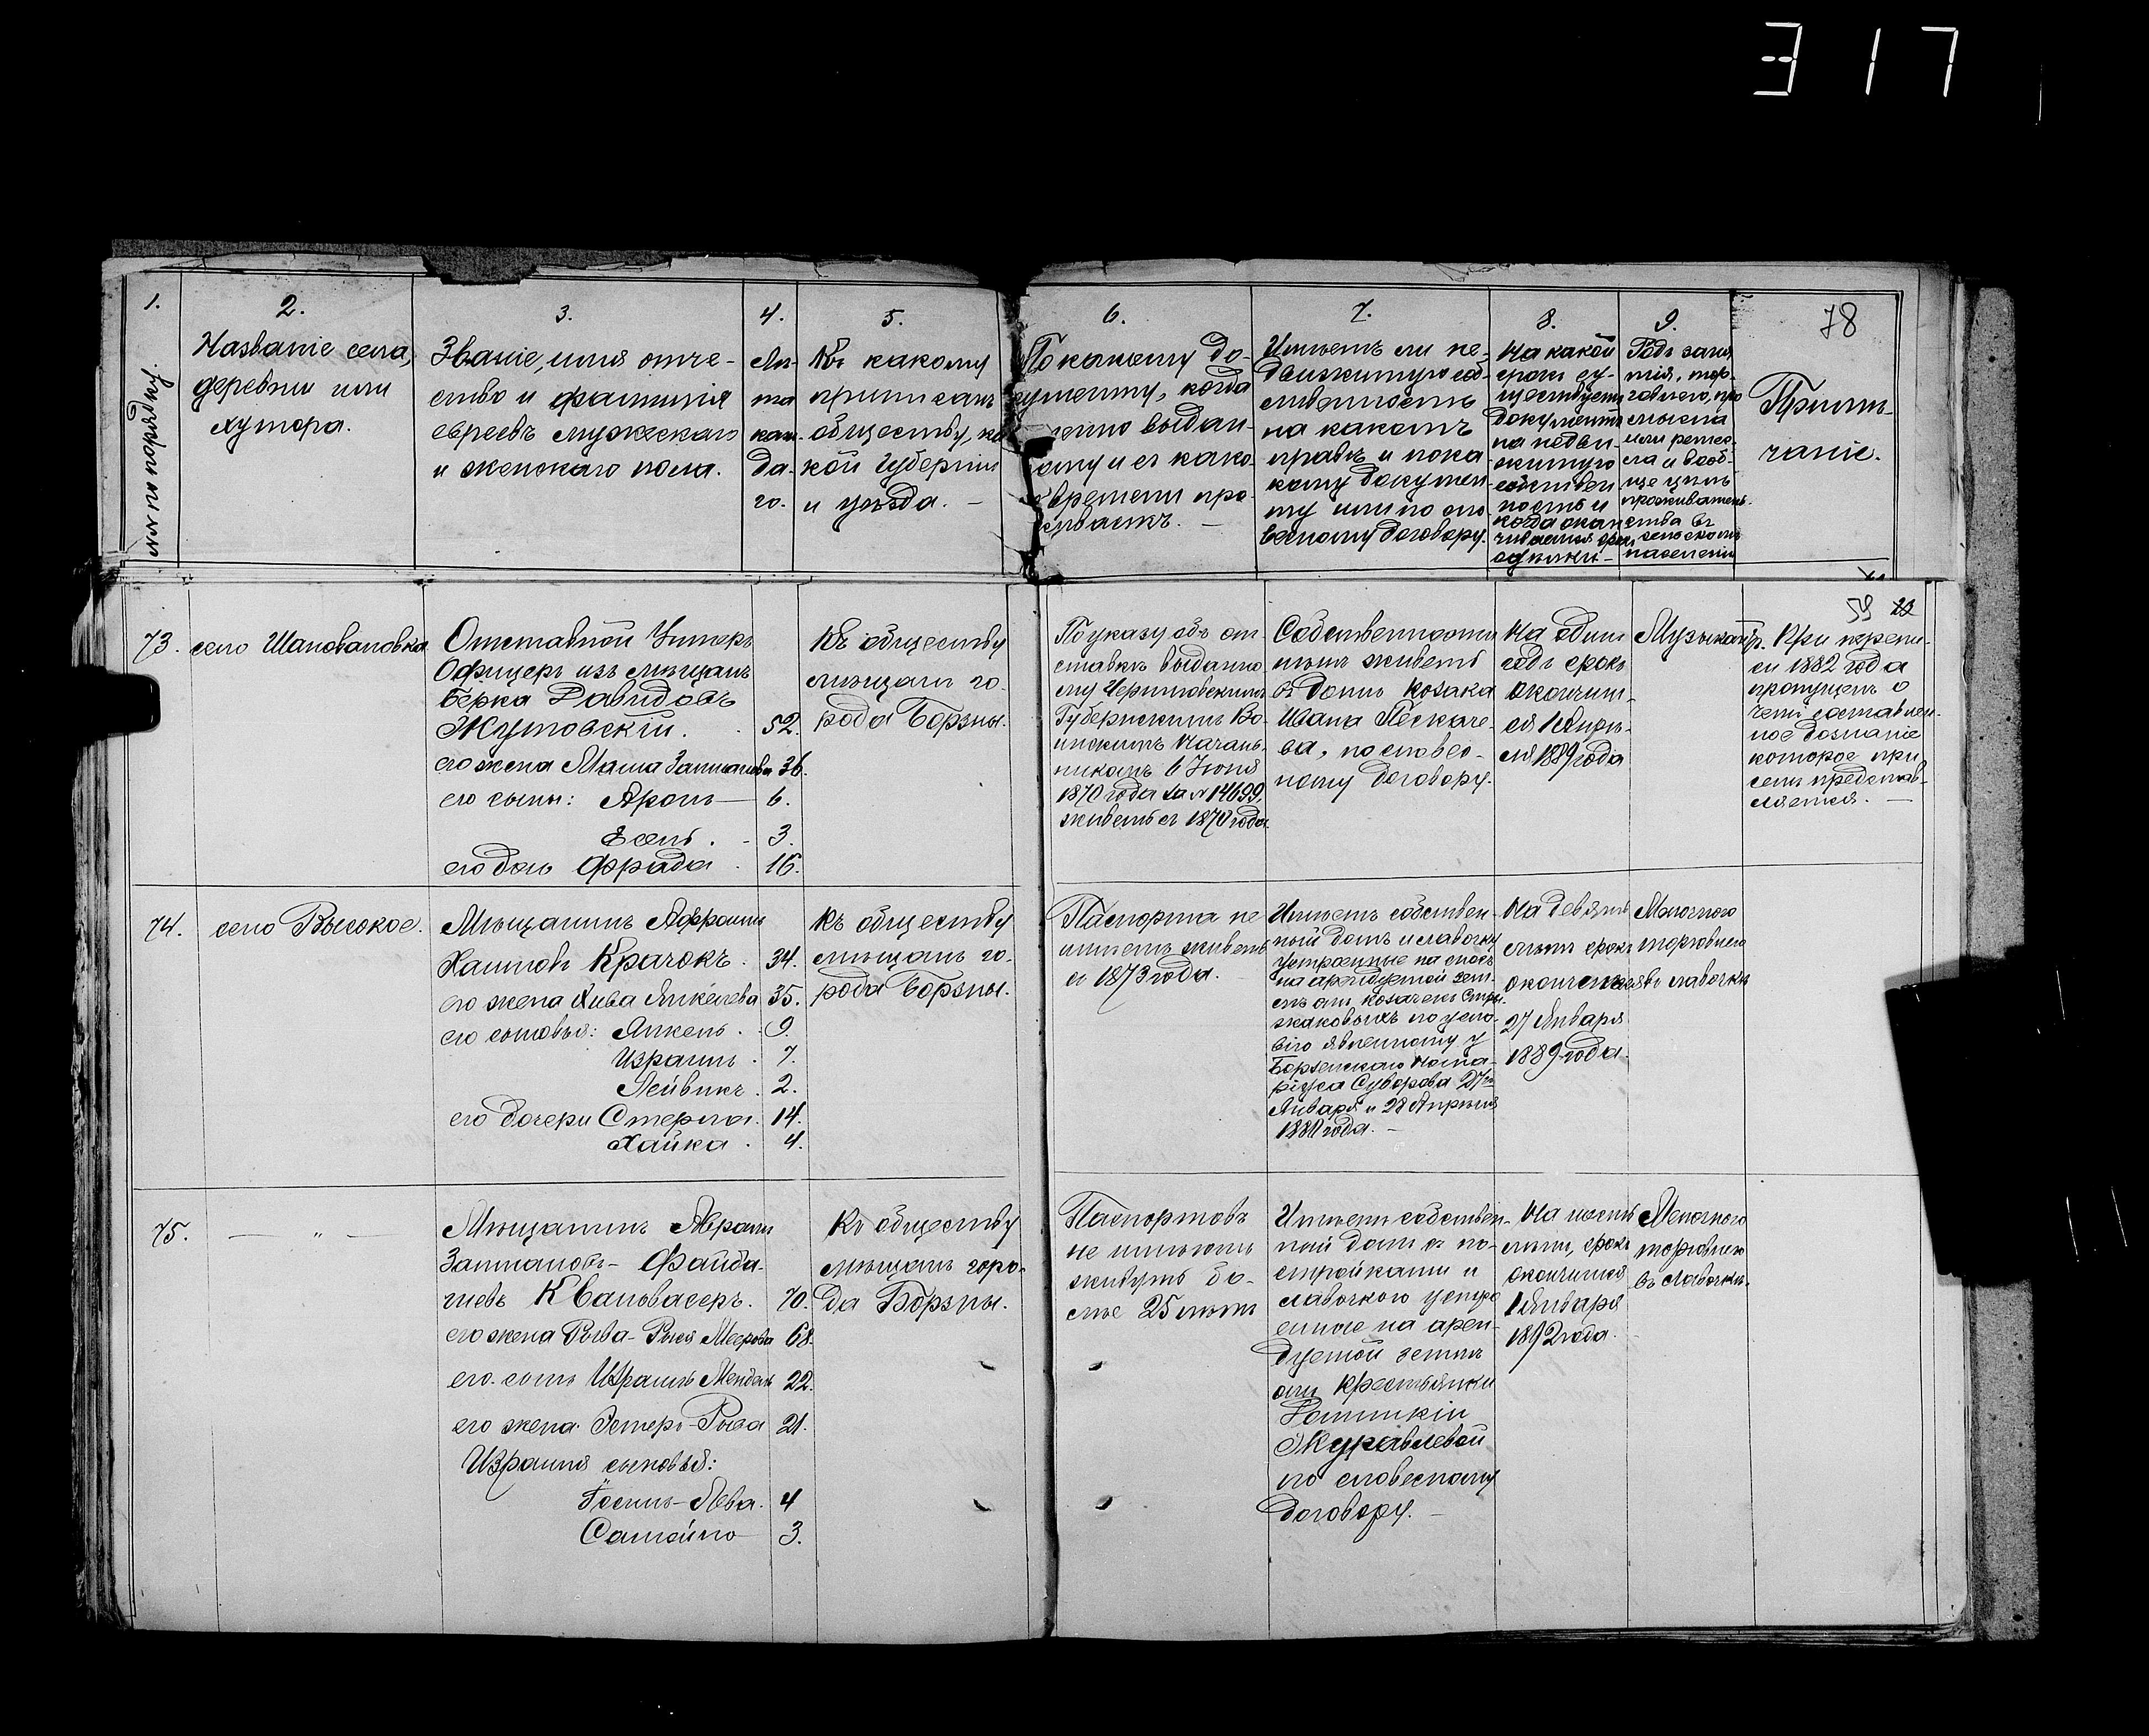 317
78
1.
№№ по порядку.
2.
Названіе села,
деревни или
хутора.
3.
Званіе, имя отче-
ство и фамилія
евреевъ мужескаго
и женскаго пола.
4.
Лѣ-
та
каж-
да-
го.
5.
Къ какому
приписанъ
обществу, ка
кой губерніи
и уѣзда. —
6.
По какому до-
кументу, когда
выдан-
ому и съ како-
времени про-
живаетъ. —
7.
Имѣетъ ли не-
движимую соб-
ственность
на какомъ
правѣ и пока
кому докумен-
ту или по сло
весному договору.
8.
На какой
срокъ су-
ществуетъ
документъ
на недви-
жимую
собствен
ность и
когда окан
чивается срокъ
9.
Родъ заня
тія, тор-
говлею, про
мысла
или ремес-
ла и вооб-
ще цѣль
проживатель-
ства въ
сельскомъ
населеніи
Примѣ-
чаніе.
59 22
73.
село Шаповаловка
Отставной Унтеръ
Офицеръ изъ мѣщанъ
Берка Давидовъ
Жутовскій. 52.
его жена Маша Залманова 36.
его сыны: Аронъ — 6.
Есель. - 3.
его дочь Фрада 16.
Къ обществу
мѣщанъ го-
рода Борзны.
По указу объ от-
ставкѣ выданно
му Черниговскимъ
Губернскимъ Во-
инскимъ Началь-
никомъ 6 Іюня
1870 года за № 14699,
живетъ съ 1870 года.
Собственности
нѣтъ живетъ
въ домѣ козака
Ивана Пёскаче-
ва, по словес-
ному договору.
На одинъ
годъ срокъ
окончит-
ся 1 Апрѣ-
ля 1889 года
Музыкантъ.
При перепи-
си 1882 года
пропущенъ о
чемъ составлен-
ное дознаніе
которое при
семъ представ-
ляется. —
74.
село Высокое.
Мѣщанинъ Афроимъ
Хаимовъ Крачокъ. 34.
его жена Хива Янкелева 35.
его сыновья: Янкель. 9.
Израиль. 7.
Лейвикъ. 2.
его дочери Стерла. 14.
Хайка. 4.
Къ обществу
мѣщанъ го-
рода Борзны.
Паспорта не
имѣетъ живетъ
съ 1873 года.
Имѣетъ собствен-
ный домъ и лавочку
устроенные на
на арендуемой зем-
лѣ отъ козачекъ
по усло-
вію явленному у
Борзенскаго Нота-
ріуса Суворова 27го
Января и 28 Апрѣля
1880 года. —
На девять
лѣтъ срокъ
окончится
27 Января
1889 года.
Мелочного
торговлею
въ лавочкѣ
75.
— „ —
Мѣщанинъ Абрамъ
Залмановъ- Файба-
шевъ Квановасеръ. 70.
его жена Рыва- Рыся Меерова 68.
его сынъ Израиль Мендель 22.
его жена Эстеръ-Рыва 21.
Израиля сыновья:
Іосиль-Лева. 4
Самойло 3.
Къ обществу
мѣщанъ горо-
да Борзны.
Паспортовъ
не имѣютъ
живутъ бо-
лѣе 25 лѣтъ
Имѣетъ собствен-
ный домъ съ по-
стройками и
лавочкою устро
енные на арен-
дуемой землѣ
отъ крестьянки
Журавлевой
по словесному
договору. —
На шесть
лѣтъ, срокъ
окончится
1 Января
1892 года.
Мелочного
торговлею
въ лавочкѣ.